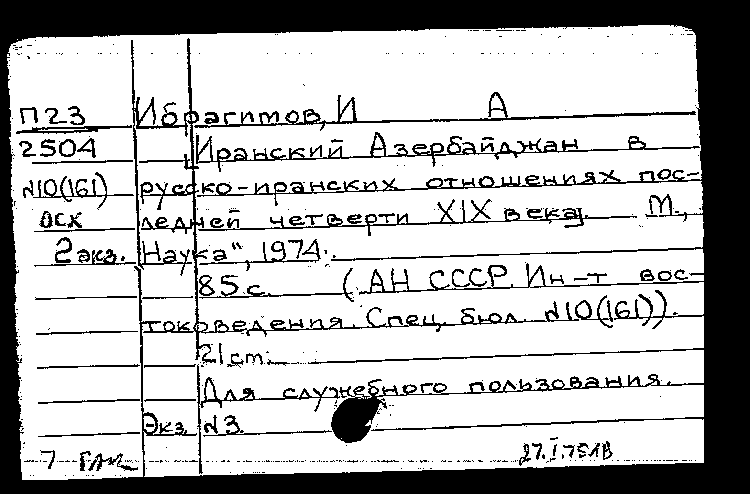 П23 Ибрагимов, И А
2504 Иранский Азербайджан в
N10(161) русско-иранских отношениях пос-
ОСХ ледней четверти XIX века. М.,
2 экз. Наука", 1974.
85 с. (АН СССР. Ин-т вос-
токоведения. Спец. бюл. N10(161)).
21 cm.
Для служебного пользования.
Экз. N3.
7 27.I.75